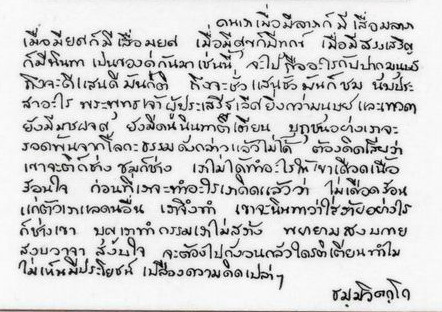 คนเราเมื่อมีลาภก็มีเสื่อมลาภ
เมื่อมียศก็มีเสื่อมยศ เมื่อมีสุขก็มีทุกข์ เมื่อมีสรรเสริญ
ก็มีนินทา เป็นของคู่กันมาเช่นนี้ จะไปถืออะไรกับปากมนุษย์
ถึงจะดีแสนดีมันก็ติ ถึงจะชั่วแสนชั่วมันก็ชม นับประ
สาอะไร พระพุทธเจ้าผู้ประเสริฐเลิศยิ่งกว่ามนุษย์และเทวดา
ยังมีมารผจญ ยังมีคนนินทาติเตียน ปุถุชนอย่างเราจะ
รอดพ้นจากโลกะธรรมดังกล่าวแล้วไม่ได้ ต้องคิดเสียว่า
เขาจะติก็ช่าง ชมก็ช่าง เราไม่ได้ทำอะไรให้เขาเดือดเนื้อ
ร้อนใจ ก่อนที่เราจะทำอะไรเราคิดแล้วว่า ไม่เดือดร้อน
แก่ตัวเราแลคนอื่น เราจึงทำ เขาจะนินทาว่าใส่ร้ายอย่างไร
ก็ช่างเขา บุญเราทำกรรมเราไม่สร้าง พยายามสงบกาย
สงบวาจา สงบใจ จะต้องไปกังวนกลัวใครติเตียนทำไม
ไม่เห็นมีประโยชน์ เปลืองความคิดเปล่าๆ
ชมฺมวิตกฺโก